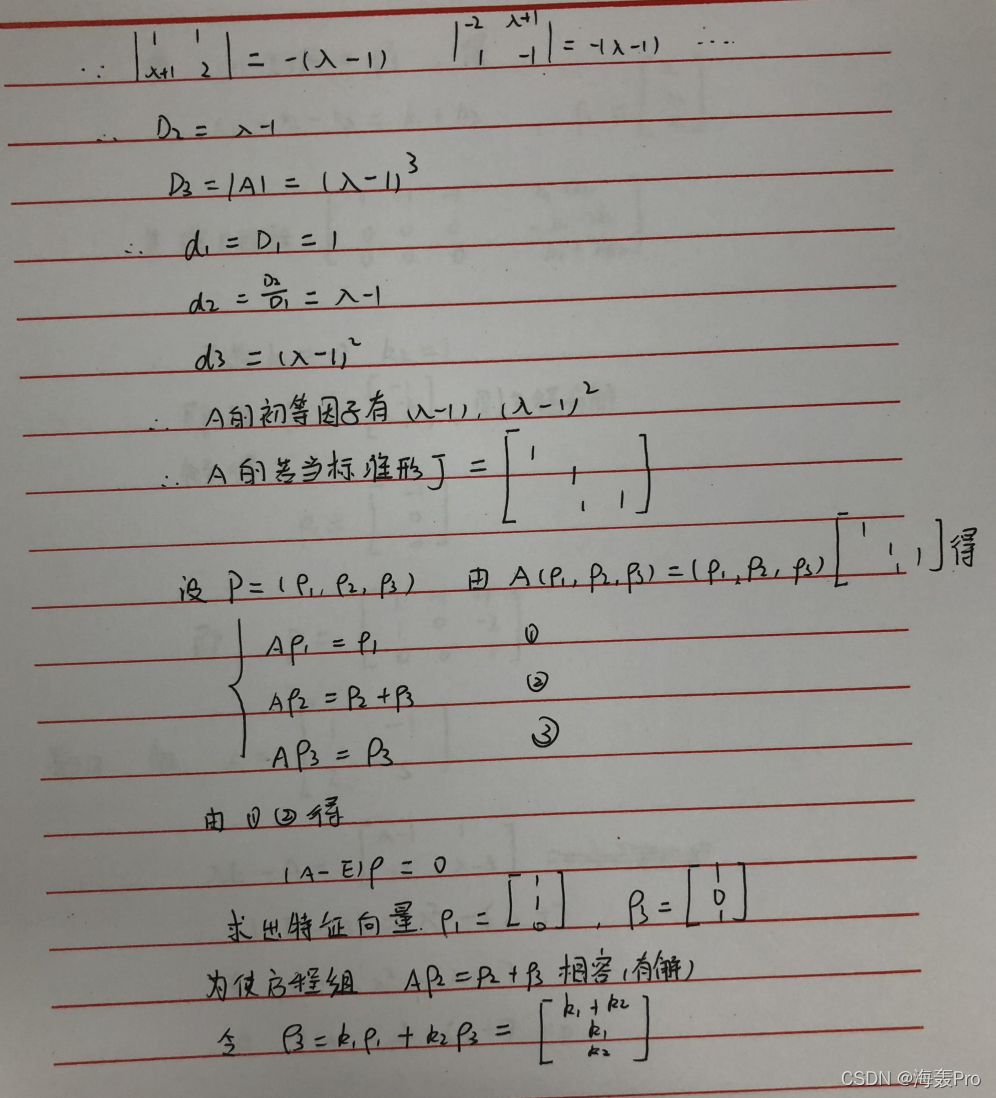 ∵ |1 1; λ+1 2| = -(λ-1) |-2 λ+1; 1 -1| = -(λ-1) ....
∴ D₂ = λ-1
D₃ = |A| = (λ-1)³
∴ d₁ = D₁ = 1
d₂ = D₂/D₁ = λ-1
d₃ = (λ-1)²
∴ A的初等因子有 (λ-1), (λ-1)²
∴ A的若当标准形J = [1; 1; 1 1]
设 P = (ρ₁, ρ₂, ρ₃) 由 A(ρ₁, ρ₂, ρ₃) = (ρ₁, ρ₂, ρ₃)[1; 1; 1 1]得
Aρ₁ = ρ₁ ①
Aρ₂ = ρ₂ + ρ₃ ②
Aρ₃ = ρ₃ ③
由①②得
(A-E)ρ = 0
求出特征向量. ρ₁ = [1; 1; 0], ρ₃ = [1; 0; 1]
为使方程组 Aρ₂ = ρ₂ + ρ₃ 相容(有解)
令 ρ₃ = k₁ρ₁ + k₂ρ₃ = [k₁+k₂; k₁; k₂]
CSDN @海轰Pro